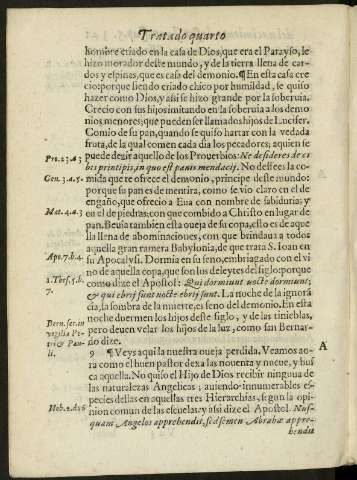 Tratado quarto
hombre criado en la casa de Dios, que era el Parayso, le
hizo morador deste mundo, y de la tierra llena de car-
dos y espinas, que es casa del demonio. ¶ En esta casa cre
cio: porque siendo criado chico por humildad, se quiso
hazer como Dios, y assi se hizo grande por la soberuia.
Crecio con sus hijos imitando en la soberuia a los demo
nios menores; que pueden ser llamados hijos de Lucifer.
Comio de su pan, quando se quiso hartar con la vedada
fruta, de la qual comen cada dia los pecadores; aquien se
puede dezir aquello de los Prouerbios: Ne desideres de ci
Pro. 23. a 3
bis principis, in quo est panis mendacij. No dessees la co-
Gen. 3. a. 5.
mida que te ofrece el demonio, principe deste mundo:
porque su pan es de mentira, como se vio claro en el de
engaño, que ofrecio a Eua con nombre de sabiduria; y
Mat. 4. a. 3
en el de piedras: con que combido a Christo en lugar de
pan. Beuia tambien esta oueja de su copa, esto es de aque
lla llena de abominaciones, con que brindaua a todos
aquella gran ramera Babylonia, de que trata S. Ioan en
Apo. 17. b. 4.
su Apocalysi. Dormia en su seno, embriagado con el vi
no de aquella copa, que son los deleytes del siglo: porque
1. Tess. 5. b.
7.
como dize el Apostol: Qui dormiunt nocte dormiunt;
& qui ebrij sunt nocte ebrij sunt. La noche de la ignorã
cia, la sombra de la muerte, es seno del demonio. En esta
noche duermen los hijos deste siglo, y de las tinieblas,
Bern. ser. in
vigilia Pe-
tri & Pau-
li.
pero deuen velar los hijos de la luz, como san Bernar-
do dize.
A
9 ¶ Veys aqui la nuestra oueja perdida. Veamos ao-
ra como el buen pastor dexa las nouenta y nueue, y bus
ca aquella. No quiso el Hijo de Dios recibir ninguna de
las naturalezas Angelicas; auiendo innumerables es-
pecies dellas en aquellas tres Hierarchias, segun la opi-
nion comun de las escuelas: y assi dize el Apostol. Nus-
Heb. 2. d. 16
quam Angelos apprehendit, sed semen Abrahæ appre-
hendit